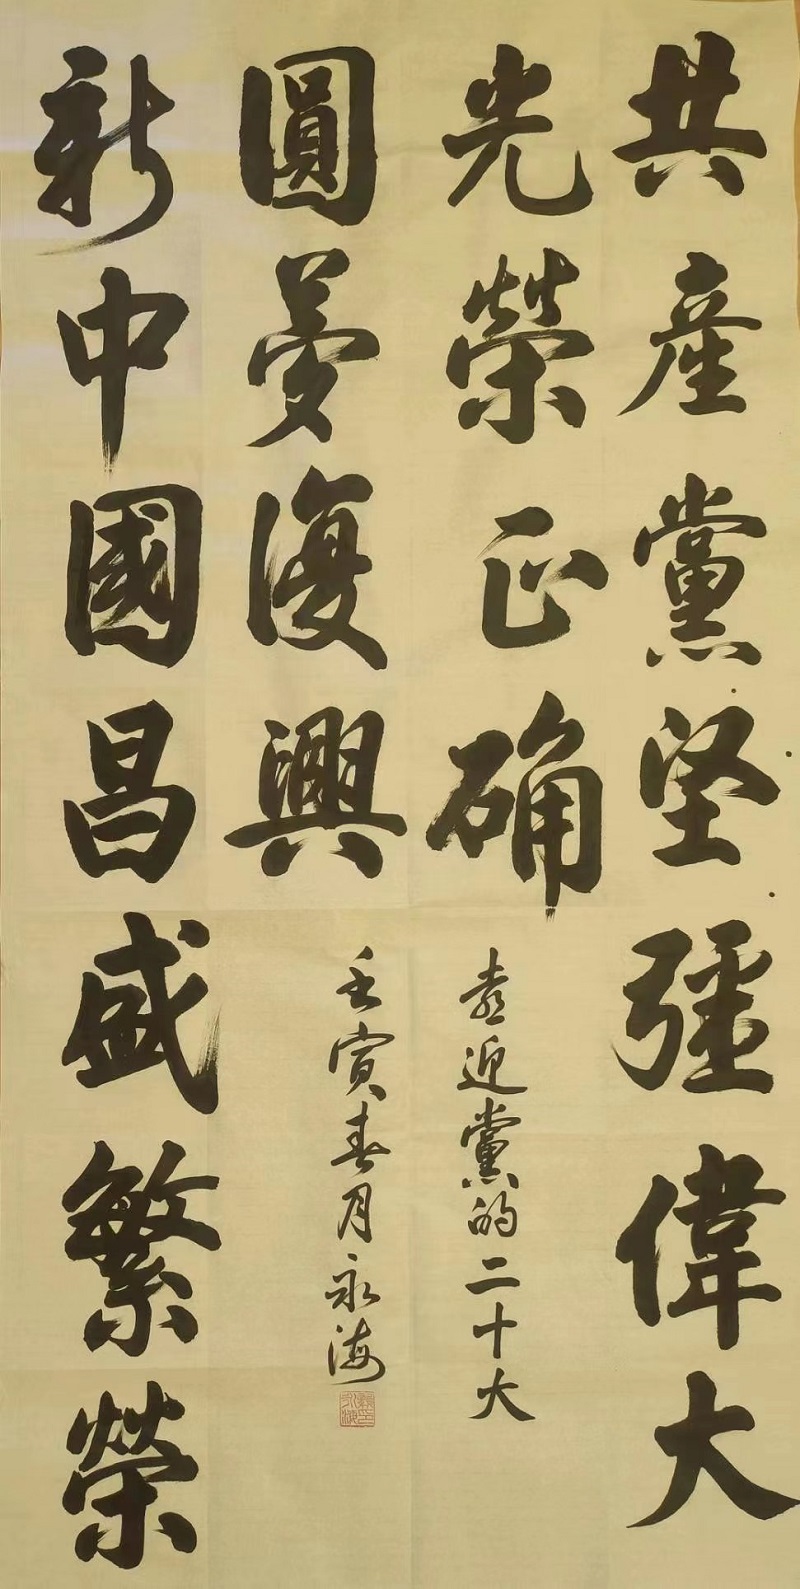 共產黨坚彊偉大
光榮正确
新中國昌盛繁榮
圓夢復興
喜迎黨的二十大
壬寅春月永海